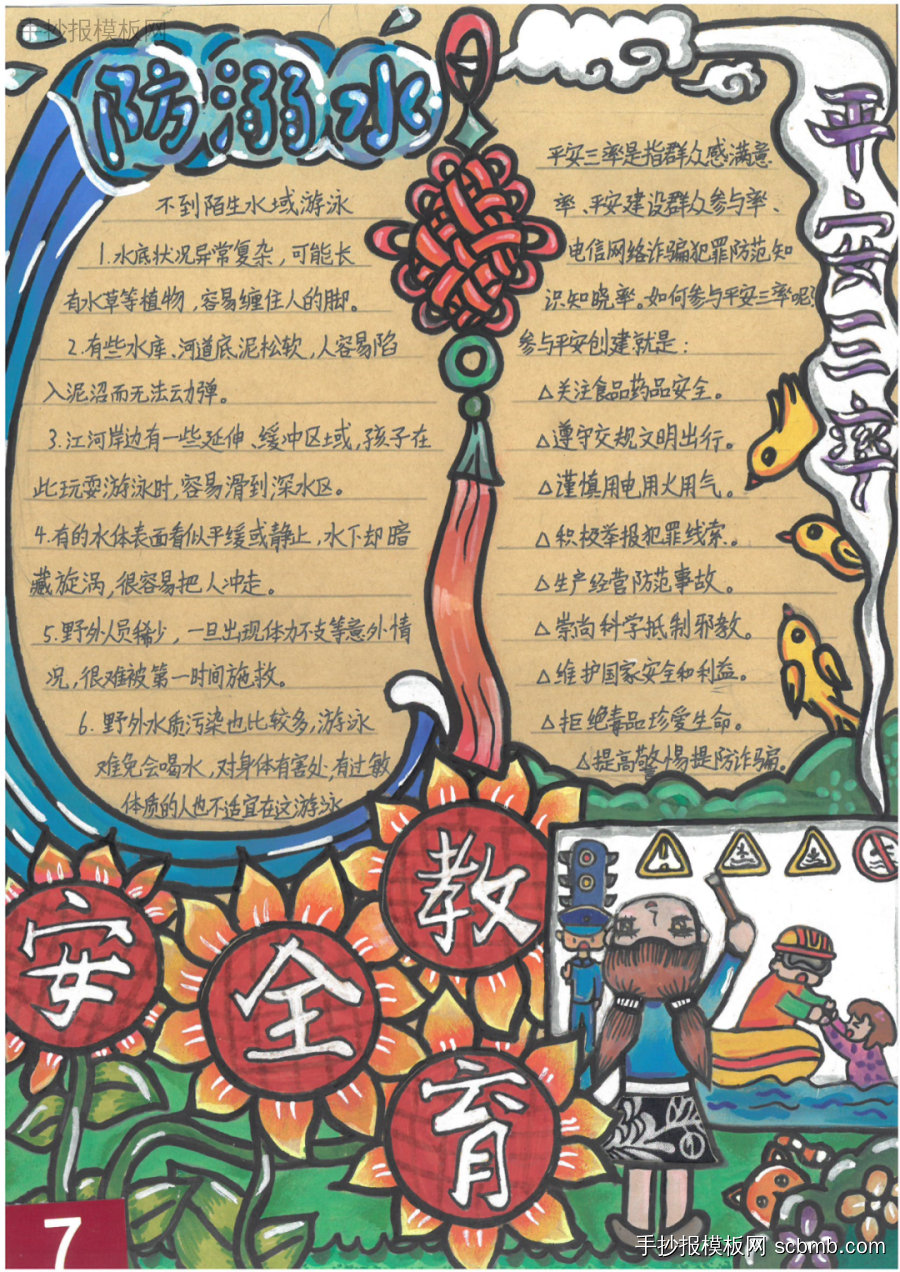 手抄报模板网
防溺水
不到陌生水域游泳
1.水底状况异常复杂，可能长
有水草等植物，容易缠住人的脚。
2.有些水库、河道底泥松软，人容易陷
入泥沼而无法动弹。
3.江河岸边有一些延伸、缓冲区域，孩子在
此玩耍游泳时，容易滑到深水区。
4.有的水体表面看似平缓或静止，水下却暗
藏旋涡，很容易把人冲走。
5.野外人员稀少，一旦出现体力不支等意外情
况，很难被第一时间施救。
6.野外水质污染也比较多，游泳
难免会喝水，对身体有害处，有过敏
体质的人也不适宜在这游泳
平安三率
平安三率是指群众感满意
率、平安建设群众参与率、
电信网络诈骗犯罪防范知
识知晓率。如何参与平安三率呢？
参与平安创建就是：
△关注食品药品安全。
△遵守交规文明出行。
△谨慎用电用火用气。
△积极举报犯罪线索。
△生产经营防范事故。
△崇尚科学抵制邪教。
△维护国家安全和利益。
△拒绝毒品珍爱生命。
△提高警惕提防诈骗。
安全教育
7
手抄报模板网 scbmb.com